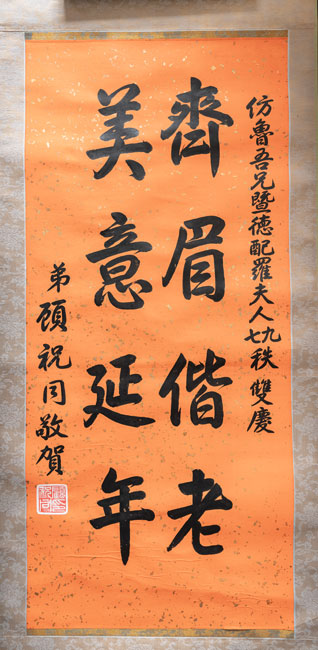 仿魯吾兄暨德配羅夫人九七秩雙慶
齊眉偕老
美意延年
弟顧祝同敬賀